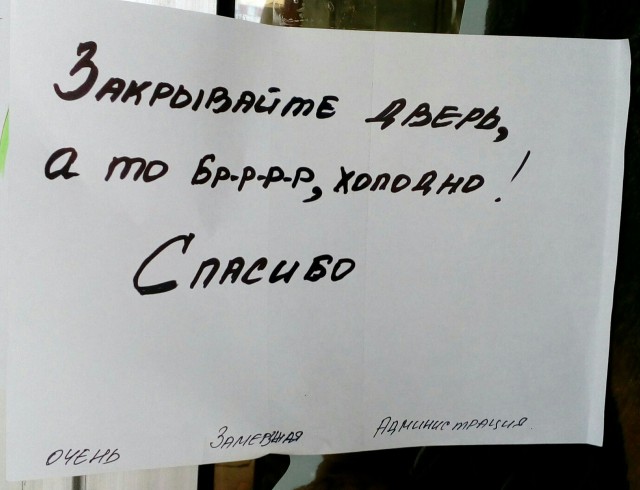 Закрывайте дверь,
а то бр-р-р-р, холодно!
Спасибо
очень Замерзшая Администрация